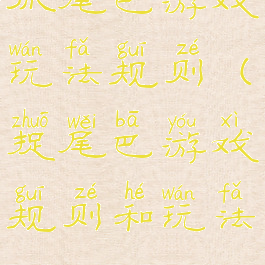 抓尾巴游戏
wán fǎ guī zé
玩法规则（
zhuō wěi bā yóu xì
捉尾巴游戏
guī zé hé wán fǎ
规则和玩法